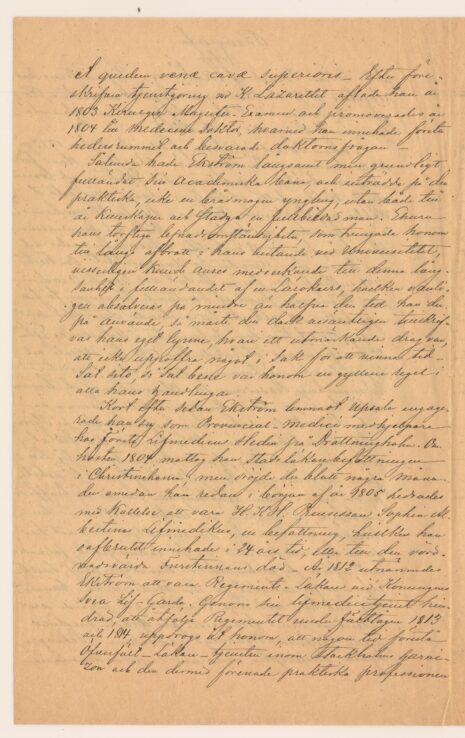 et quidem venæ cavæ superioris_ Efter före-
skrifven tjenstgöring vid K. Lazarettet aflade han år
1803 Kirurgie Magister-Examen och promoverades år
1804 till Medicine Doktor, hvarvid han innehade första
hedersrummet och besvarade doktorsfrågan_
Sålunda hade Ekström långsamt men grundligt
fulländat sin Academiska bana, och inträdde på den
praktiska, icke en brådmogen yngling, utan både till
år kunskaper och stadga en fullbildad man. Ehuru
hans torftiga lefnadsomständigheter, som tvungade honom
till långa afbrott i hans vistande vid Universitetet,
visserligen kunde anses medverkande till denna lång-
samhet i fulländandet af en Lärokurs, hvilken vanli-
gen absolveras på mindre än hälften den tid han der-
på använde, så måste den dock väsentligen tillskrif-
vas hans eget lynne, hvari ett utmärkande drag var,
att icke uppoffra något i sak för att vinna tid_
Sat cito, si sat bene var honom en gyllene regel i
alla hans handlingar.
Kort efter sedan Ekström lemnat Upsala engage-
rade han sig som Provincial-Medici medhjelpare
hos förste Lifmedicus Hedin på Drottningholm. Om
hösten 1804 mottog han Stadsläkarebefattningen
i Christinehamn, men dröjde der blott några Måna-
der emedan han redan i början af år 1805 hedrades
med kallelse att vara H. K. H. Prinsessan Sophia Al-
bertinas Lifmedikus, en befattning, hvilken han
oafbrutet innehade i 24 års tid, eller till den vörd-
nadsvärda Furstinnans död_ År 1812 utnämndes
Ekström att vara Regements-Läkare vid Konungens
Svea Lif-Garde. Genom sin lifmedicitjenst hin-
drad, att åtfölja Regimentet under fälttågen 1813
och 1814 uppdrogs åt honom, att någon tid förestå
Öfverfält-Läkare-tjensten inom Stockholms Garni-
zon och den dermed förenade praktiska professionen